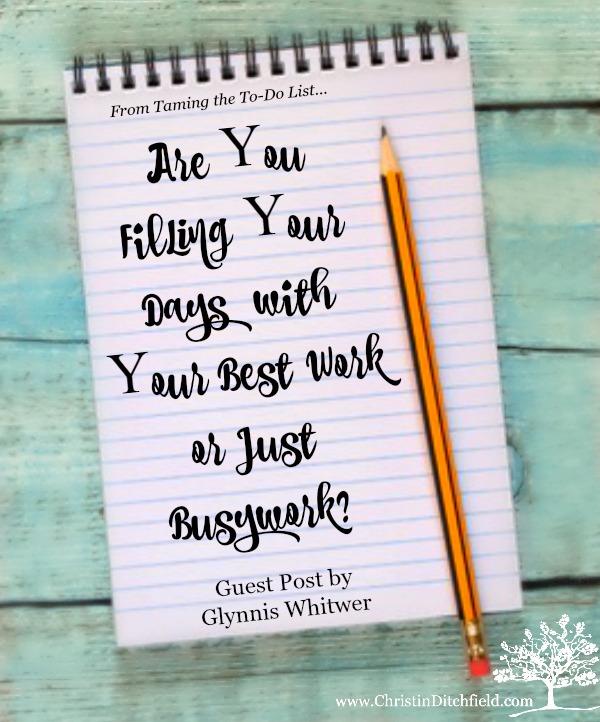 From Taming the To-Do List...
Are You
Filling Your
Days with
Your Best Work
or Just
Busywork?
Guest Post by
Glynnis Whitwer
www.ChristinDitchfield.com